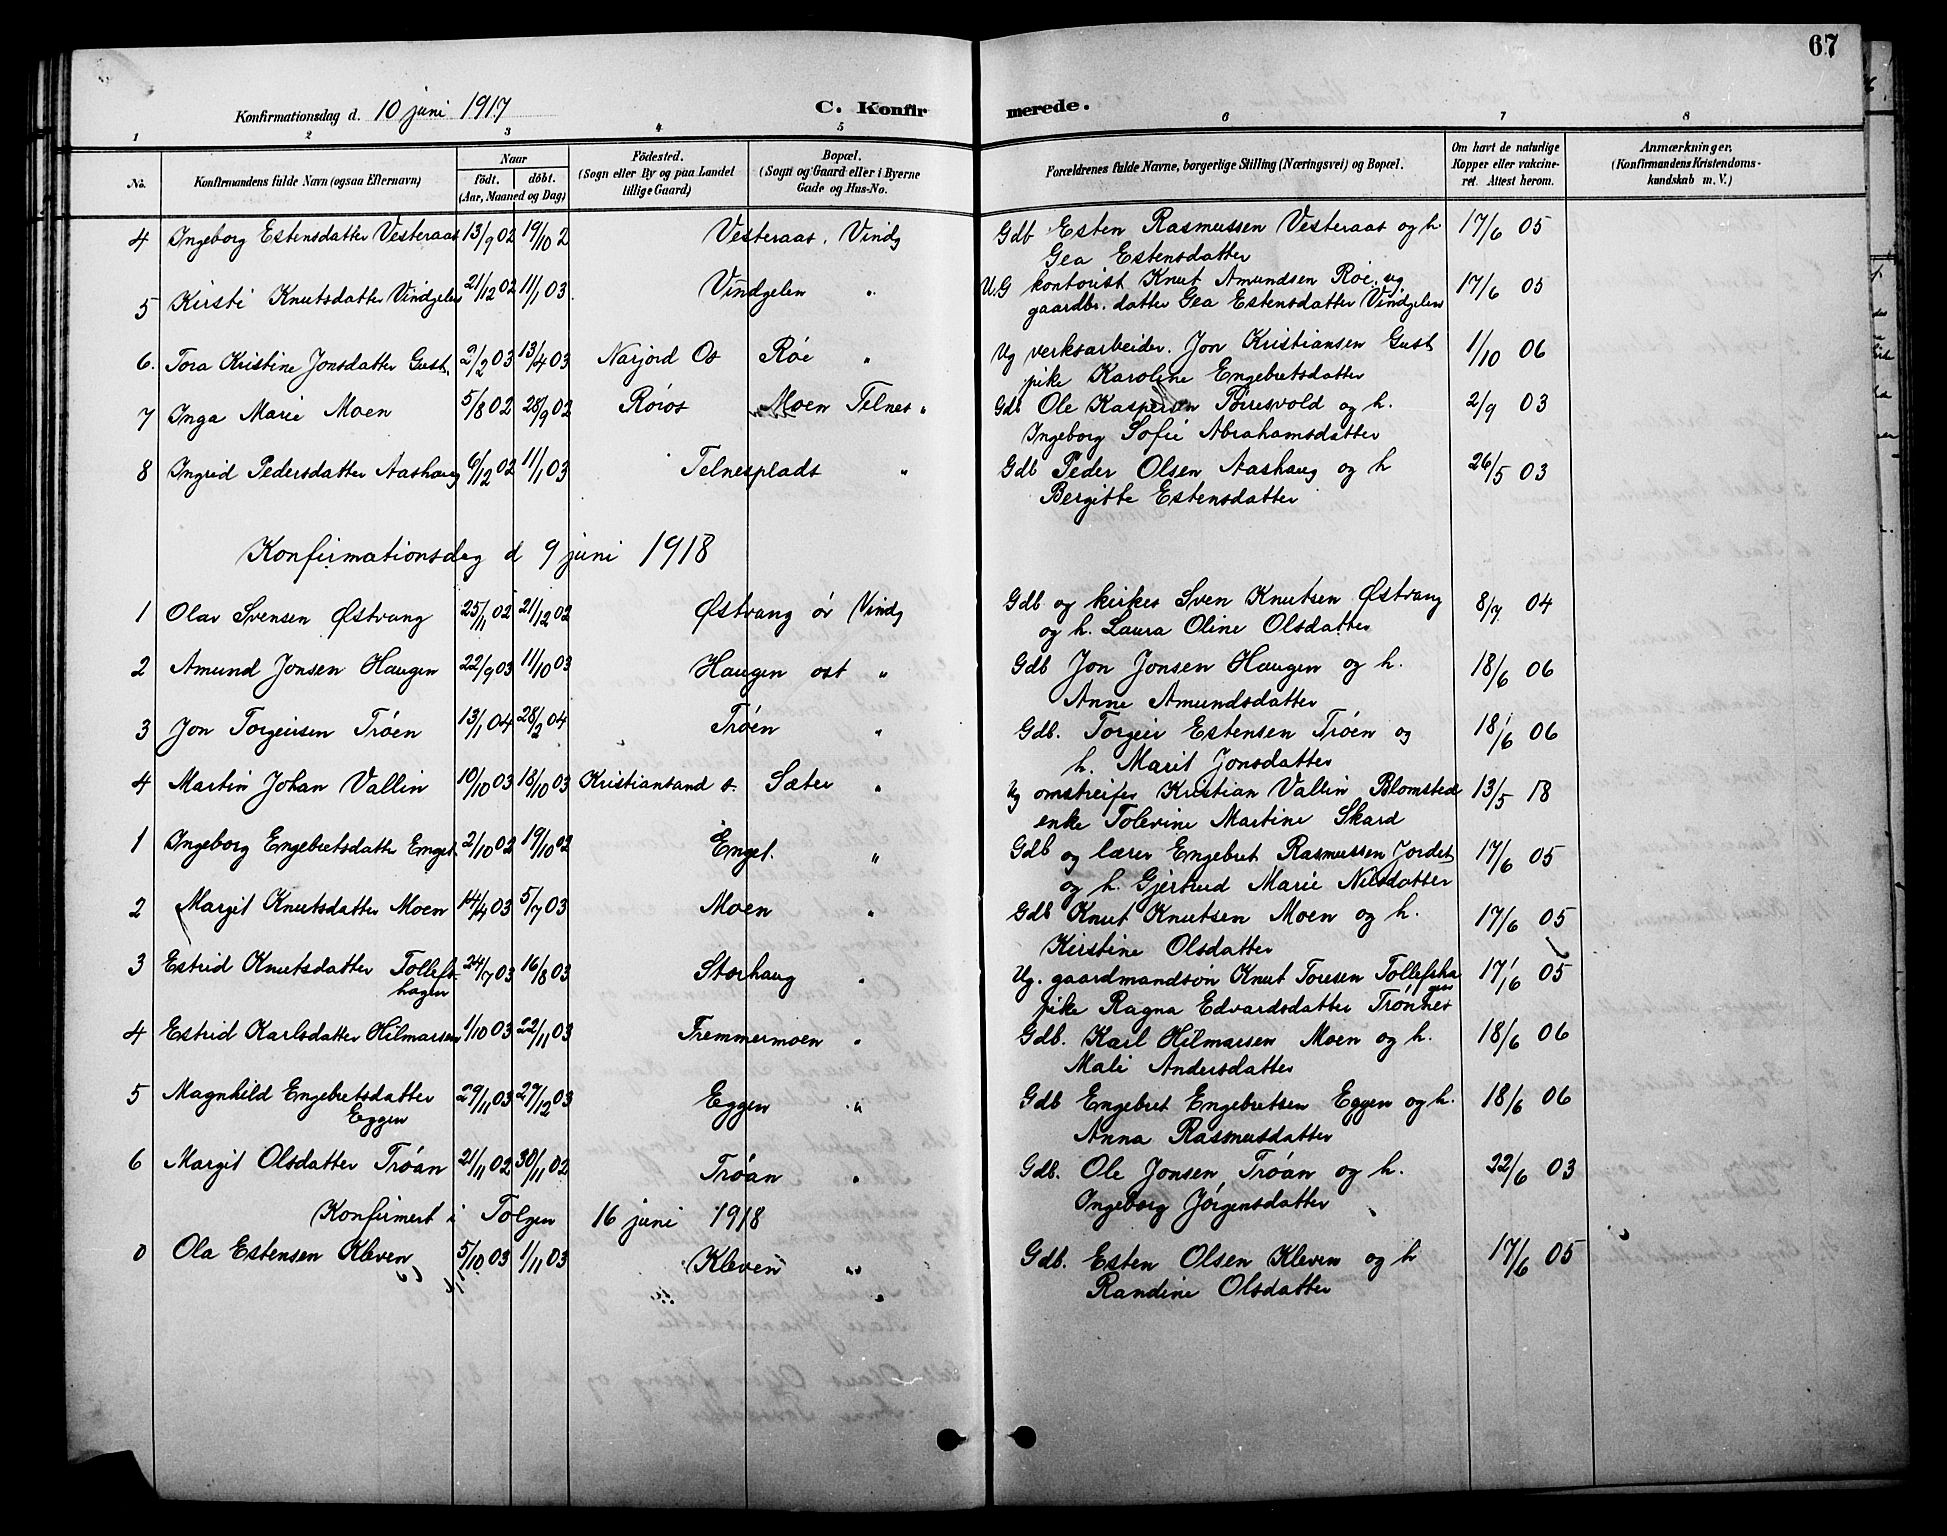 67
Konfirmationsdag d. 10 juni 1917 C. Konfirmerede.
1 2 3 4 5 6 7 8
No. Konfirmandens fulde Navn (ogsaa Efternavn) Naar födt. döbt. (Aar, Maaned og Dag) Födested. (Sogn eller By og paa Landet tillige Gaard) Bopæl. (Sogn og Gaard eller i Byerne Gade og Hus-No. Forældrenes fulde Navne, borgerlige Stilling (Næringsvei) og Bopæl. Om havt de naturlige Kopper eller vakcineret. Attest herom. Anmærkninger. (Konfirmandens Kristendomskundskab m. V.)
4 Ingeborg Estensdatter Vesteraas 13/9 02 19/10 2 Vesteraas. Vindg Gdb Esten Rasmussen Vesteraas og h. 17/6 05
Gea Estensdatter
5 Kirsti Knutsdatter Vindgelen 21/12 02 11/1 03. Vindgelen " U.G kontorist Knut Amundsen Røe. og 17/6 05
gaardbr. datter Gea Estensdatter Vindgelen
6. Tora Kristine Jonsdatter Gust. 2/2 03 13/4 03 Narjord Os Røe " Ug verksarbeider. Jon Kristiansen Gust 1/10 06
pike Karoline Engebretsdatter
7 Inga Marie Moen 5/8 02 28/9 02 Röros Moen Telnes " Gdb Ole Kaspersen Borsvold og h. 2/9 03
Ingeborg Sofie Abrahamsdatter
8 Ingrid Pedersdatter Aashaug 6/12 02 11/1 03 Telnesplads " Gdb Peder Olsen Aashaug og h 26/5 03
Bergitte Estensdatter
Konfirmationsdag d 9 juni 1918
1 Olav Svensen Østvang 25/11 02 21/12 02 Østvang ör Vindg Gdb og kirkes Sven Knutsen Østvang 8/7 04
og h. Laura Oline Olsdatter
2 Amund Jonsen Haugen 22/9 03 11/10 03 Haugen ost " Gdb Jon Jonsen Haugen og h. 18/6 06
Anne Amundsdatter
3 Jon Torgeirsen Trøen 13/1 04 28/2 04 Trøen " Gdb. Torgeir Estensen Trøen og 18/6 06
h. Marit Jonsdatter
4 Martin Johan Vallin 10/10 03 18/10 03 Kristiansand s. Sæter " Ug omstreifer Kristian Vallin Blomsted 13/5 18
enke Tolevine Martine Skard
1 Ingeborg Engebretsdatter Emget. 2/10 02 19/10 02 Emget. " Gdb og lærer Engebret Rasmussen Jordet 17/6 05
og h. Gjertrud Marie Nilsdatter
2 Margit Knutsdatter Moen 14/4 03 5/7 03 Moen " Gdb Knut Knutsen Moen og h. 17/6 05
Kirstine Olsdatter
3 Estrid Knutsdatter Tollefs- 24/7 03 16/8 03 Storhaug " Ug. gaardmandsøn Knut Toresen Tollefsha 17/6 05
hagen gen
pike Ragna Edvardsdatter Trønnes
4 Estrid Karlsdatter Hilmarsen 1/10 03 22/11 03 Fremmermoen " Gdb. Karl Hilmarsen Moen og h. 18/6 06
Mali Andersdatter
5 Magnhild Engebretsdatter 29/11 03 27/12 03 Eggen " Gdb Engebret Engebretsen Eggen og h. 18/6 06
Eggen Anna Rasmusdatter
6 Margit Olsdatter Trøan 21/11 02 30/11 02 Trøan " Gdb. Ole Jonsen Trøan og h. 22/6 03
Ingeborg Jörgensdatter
Konfirmert i Tolgen 16 juni 1918
0 Ola Estensen Kleven 5/10 03 1/11 03 Kleven " Gdb. Esten Olsen Kleven og h 17/6 05
Randine Olsdatter